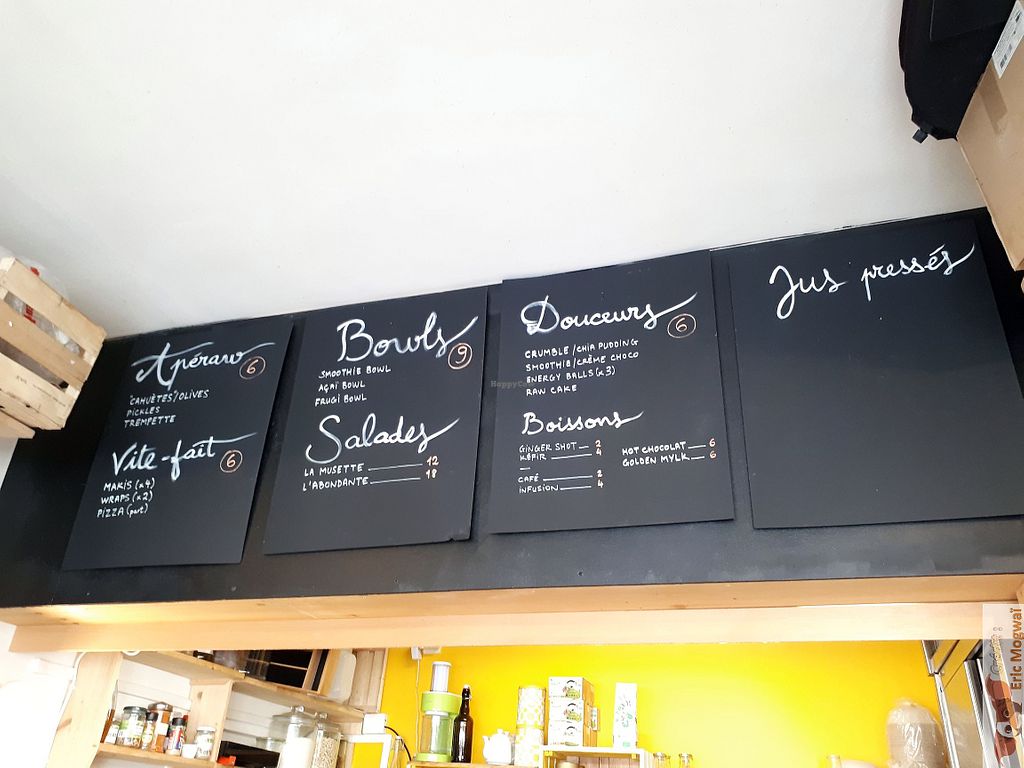 Apérawo 6
"CAHUÈTES"/OLIVES
PICKLES
TREMPETTE
Vite-fait 6
MAKIS (x4)
WRAPS (x2)
PIZZA (part)
Bowls 9
SMOOTHIE BOWL
AÇAÏ BOWL
FRUGI BOWL
Salades
LA MUSETTE 12
L'ABONDANTE 18
Douceurs 6
CRUMBLE / CHIA PUDDING
SMOOTHIE / CRÈME CHOCO
ENERGY BALLS (x3)
RAW CAKE
Boissons
GINGER SHOT 2
KÉFIR 4
CAFÉ 2
INFUSION 4
HOT CHOCOLAT 6
GOLDEN MYLK 6
Jus pressés
HappyCow
Eric Mogwaï